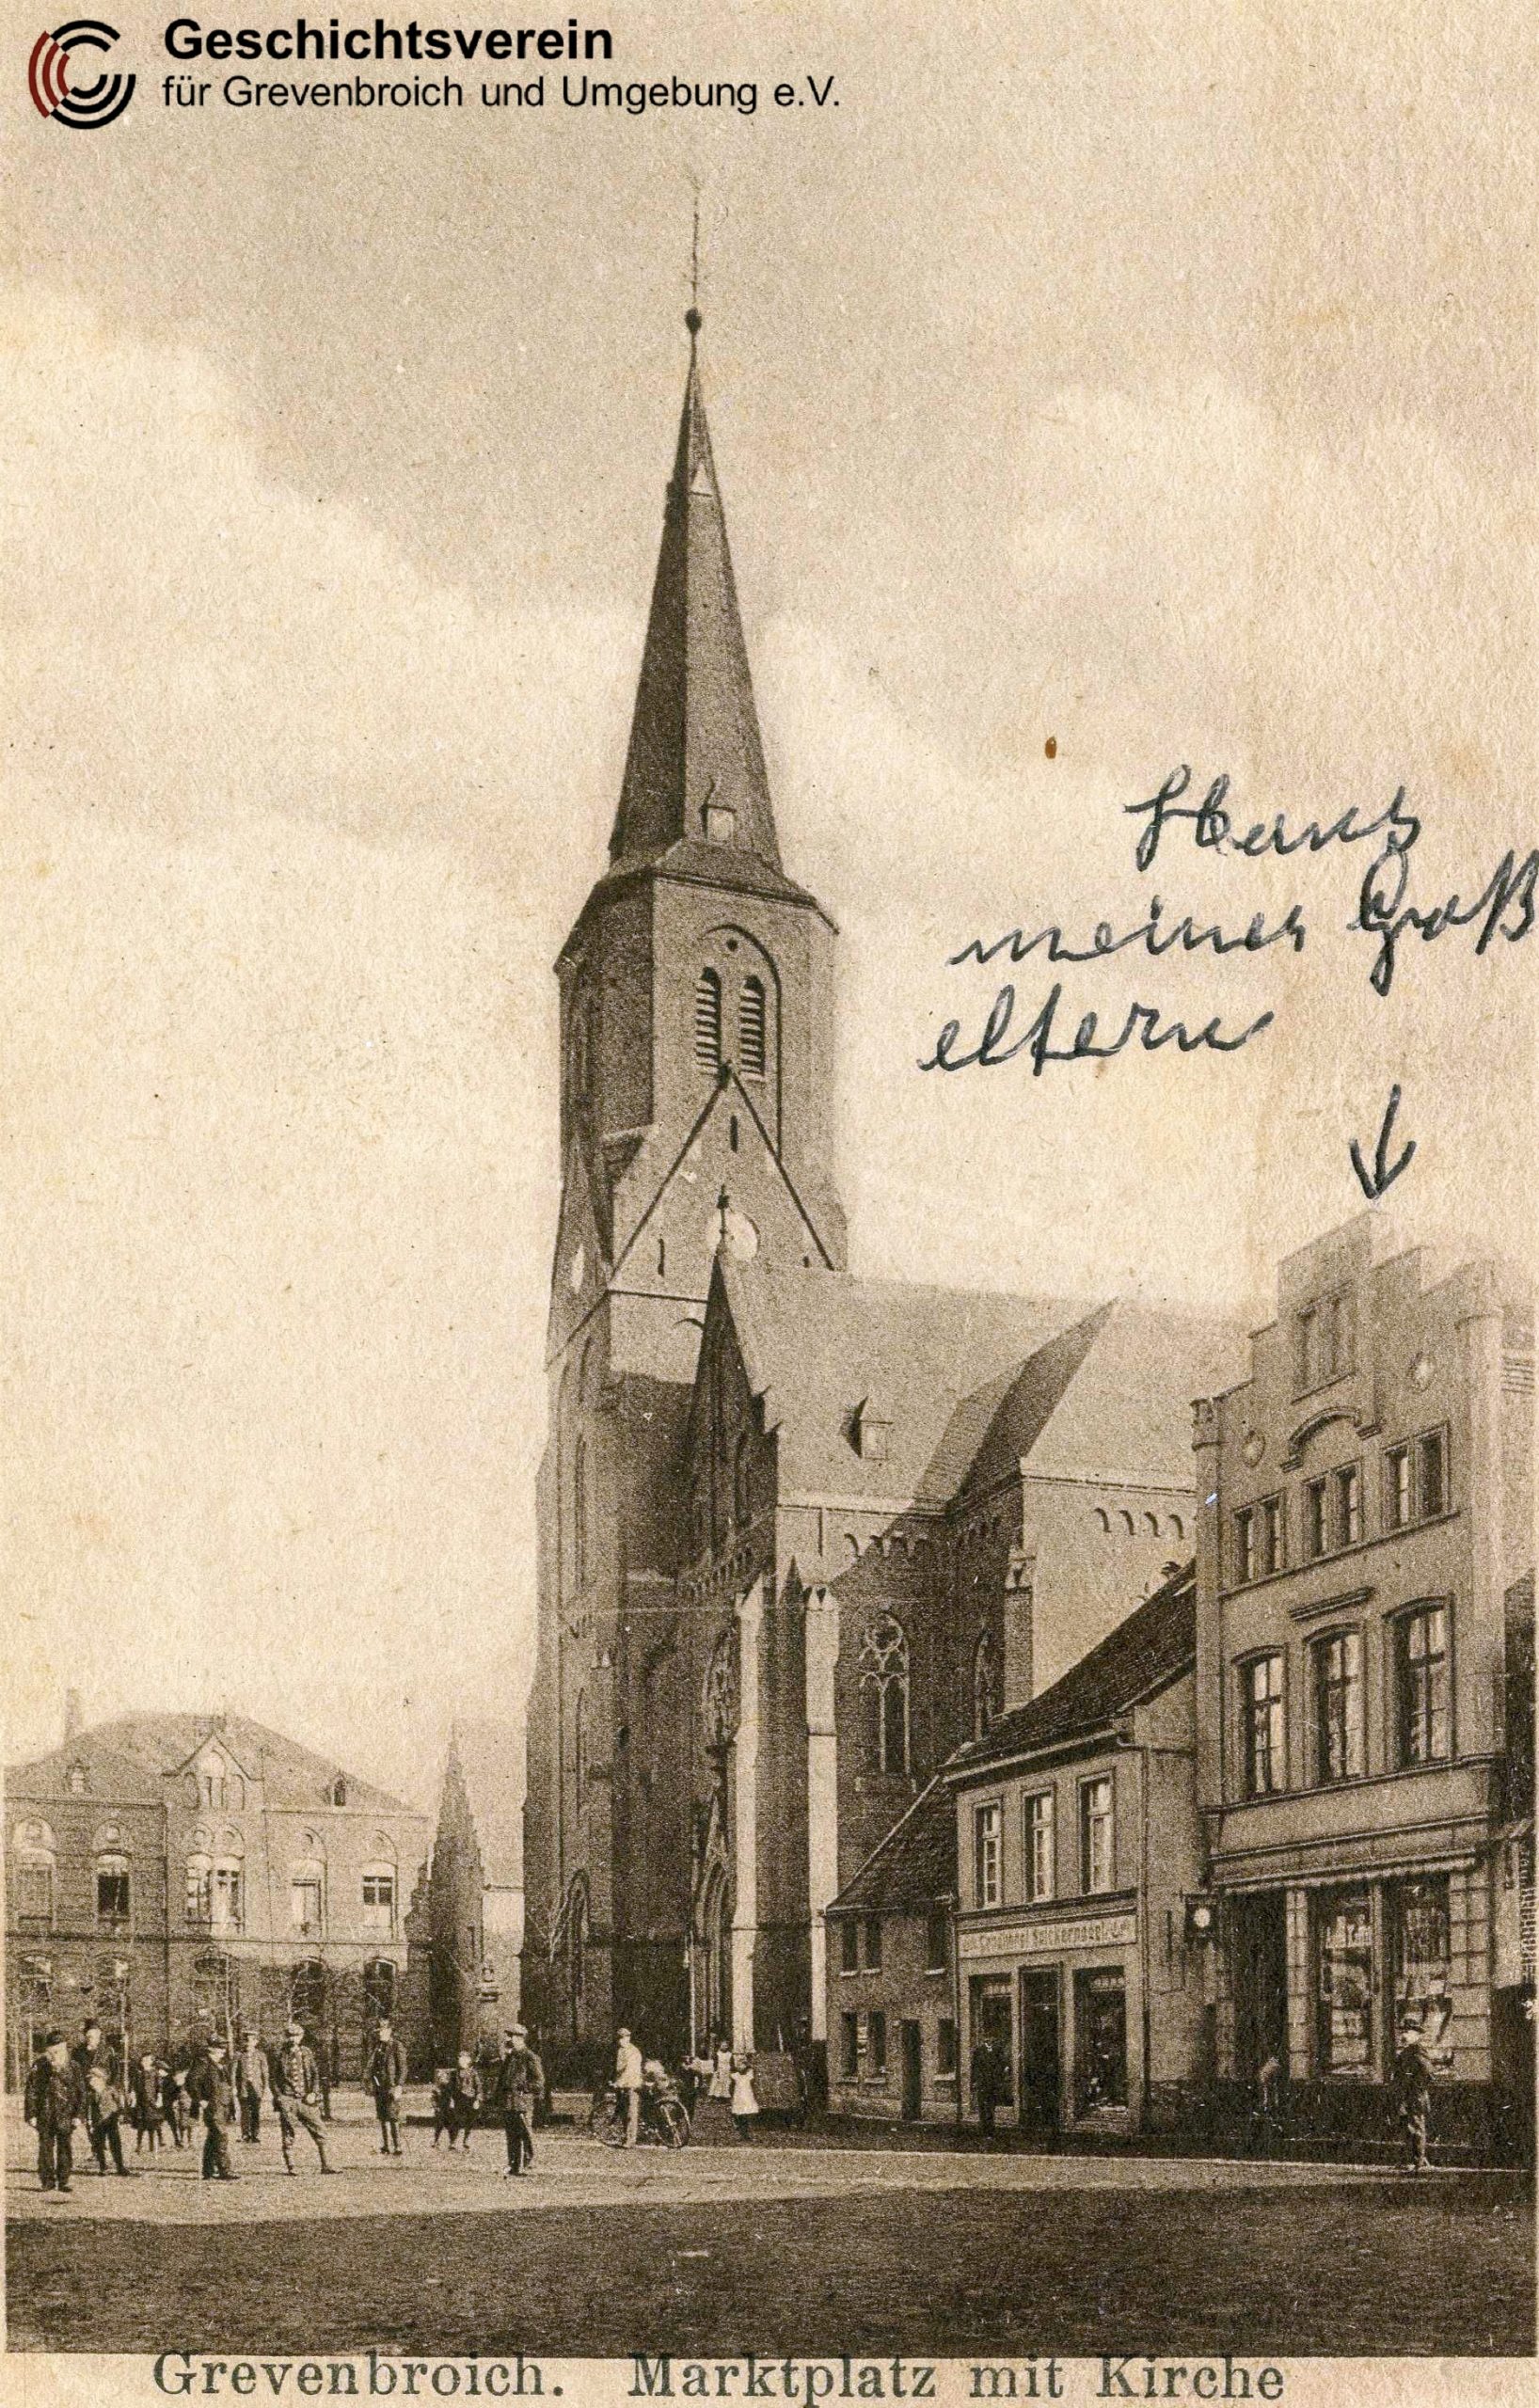 Geschichtsverein
für Grevenbroich und Umgebung e.V.
Haus
meiner Groß
eltern
Grevenbroich. Marktplatz mit Kirche